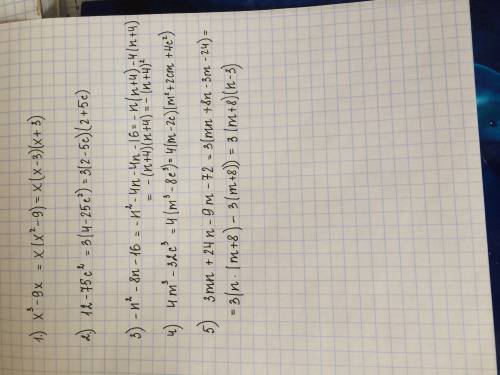 1) x³ - 9x = x(x² - 9) = x(x - 3)(x + 3)
2) 12 - 75c² = 3(4 - 25c²) = 3(2 - 5c)(2 + 5c)
3) -n² - 8n - 16 = -n² - 4n - 4n - 16 = -n(n + 4) - 4(n + 4)
= -(n + 4)(n + 4) = -(n + 4)²
4) 4m³ - 32c³ = 4(m³ - 8c³) = 4(m - 2c)(m² + 2cm + 4c²)
5) 3mn + 24n - 9m - 72 = 3(mn + 8n - 3m - 24) =
= 3(n · (m + 8) - 3(m + 8)) = 3(m + 8)(n - 3)